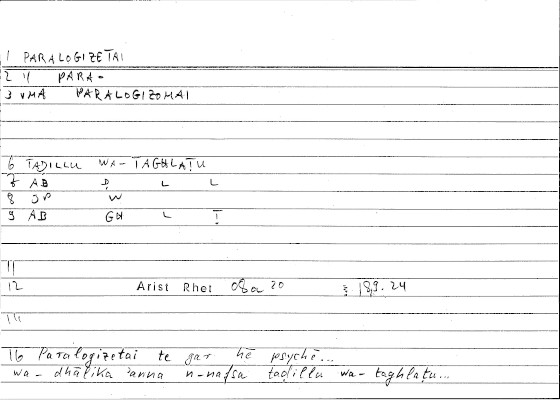 1 PARALOGIZETAI
2 4 PARA-
3 VMA PARALOGIZOMAI
6 TAḌILLU WA-TAGHLAṬU
7 AB Ḍ L L
8 OP W
9 AB GH L Ṭ
11
12 Arist Rhet 08a 20 189.24
14
16 Paralogizetai te gar hē psychē...
wa-dhālika ʾanna n-nafsa taḍillu wa-taghlaṭu...